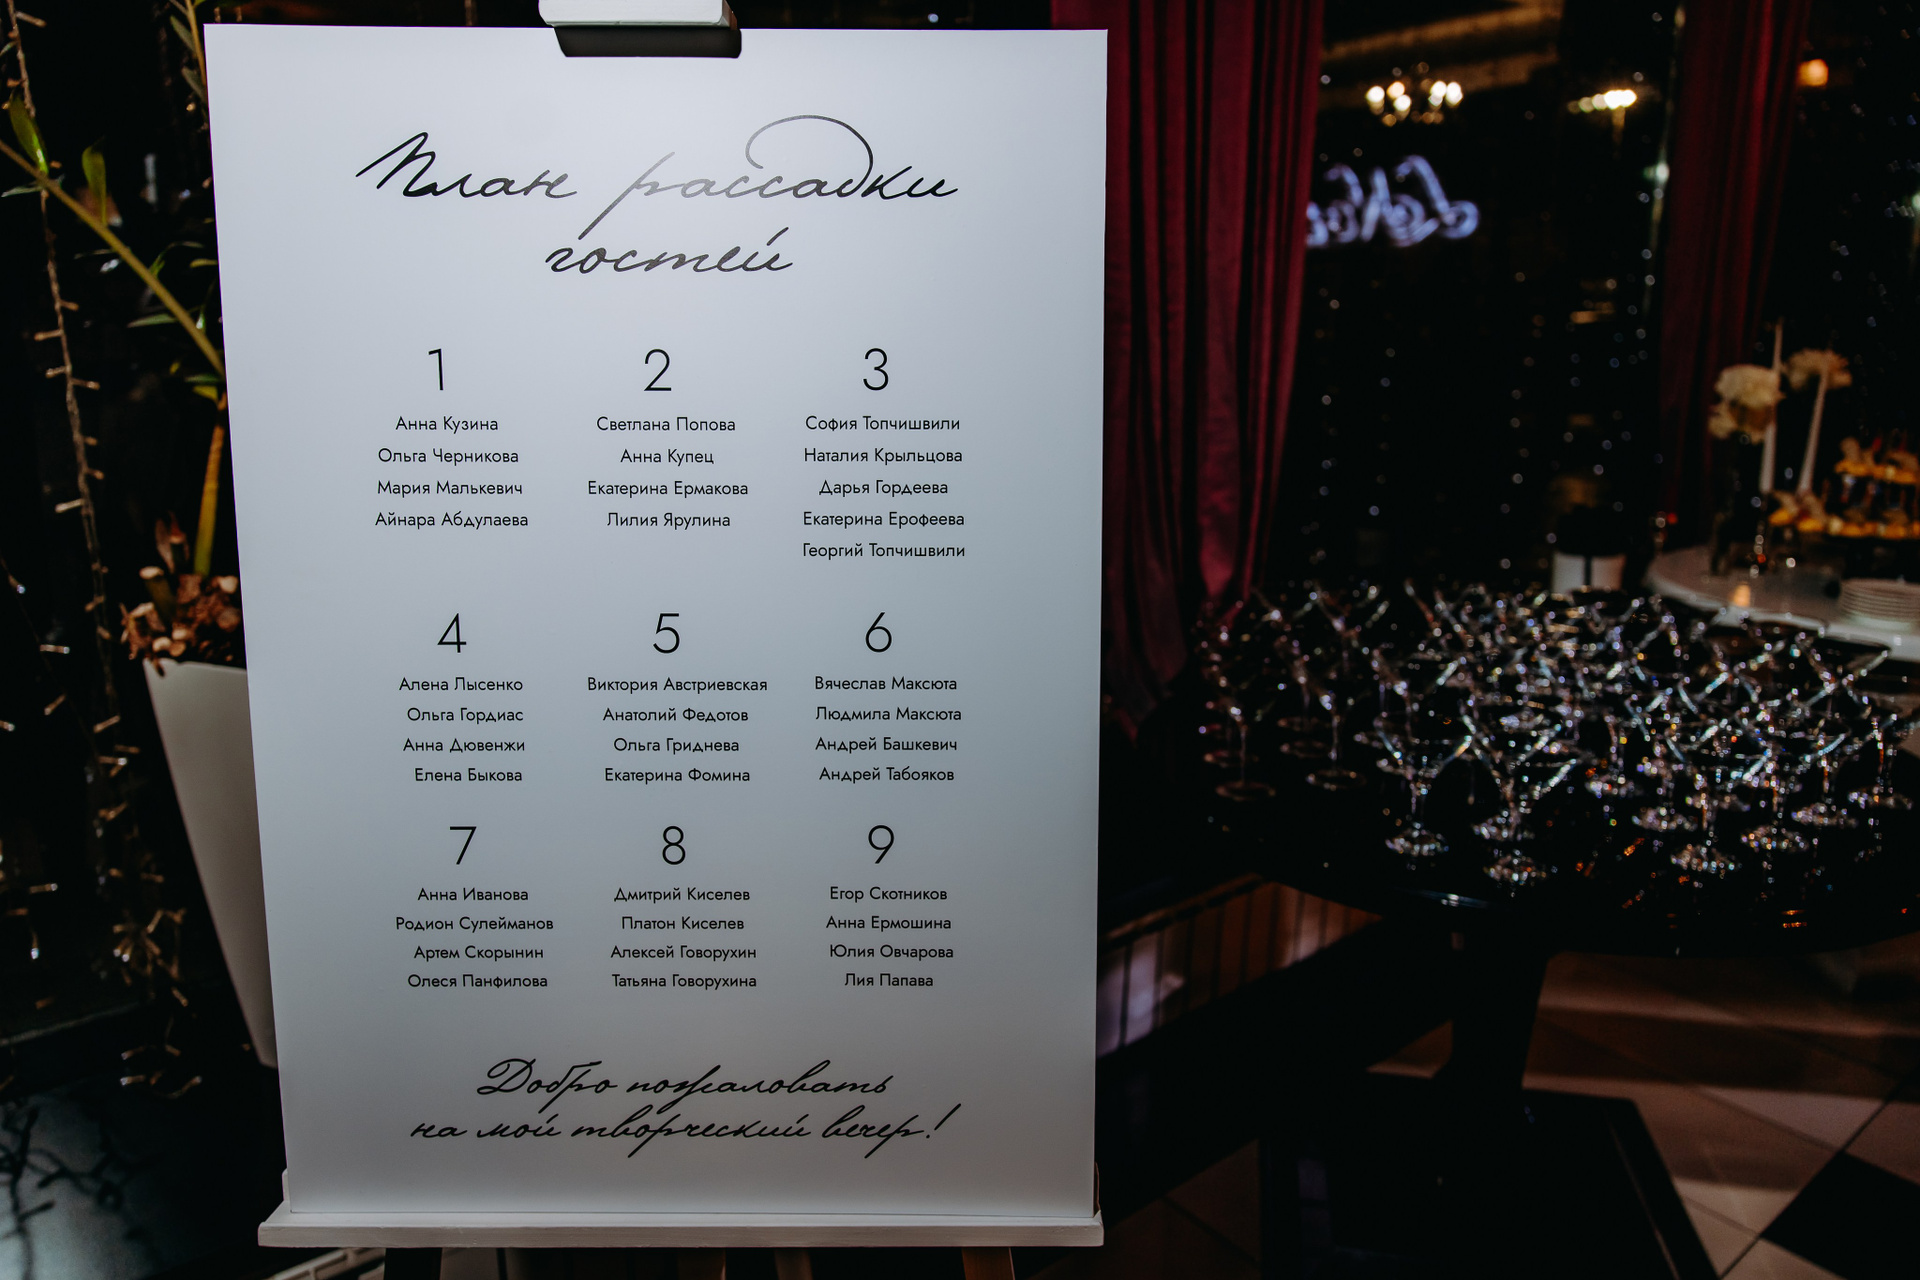 План рассадки
гостей
1
Анна Кузина
Ольга Черникова
Мария Малькевич
Айнара Абдулаева
2
Светлана Попова
Анна Купец
Екатерина Ермакова
Лилия Ярулина
3
София Топчишвили
Наталия Крыльцова
Дарья Гордеева
Екатерина Ерофеева
Георгий Топчишвили
4
Алена Лысенко
Ольга Гордиас
Анна Дювенжи
Елена Быкова
5
Виктория Австриевская
Анатолий Федотов
Ольга Гриднева
Екатерина Фомина
6
Вячеслав Максюта
Людмила Максюта
Андрей Башкевич
Андрей Табояков
7
Анна Иванова
Родион Сулейманов
Артем Скорынин
Олеся Панфилова
8
Дмитрий Киселев
Платон Киселев
Алексей Говорухин
Татьяна Говорухина
9
Егор Скотников
Анна Ермошина
Юлия Овчарова
Лия Папава
Добро пожаловать
на мой творческий вечер!